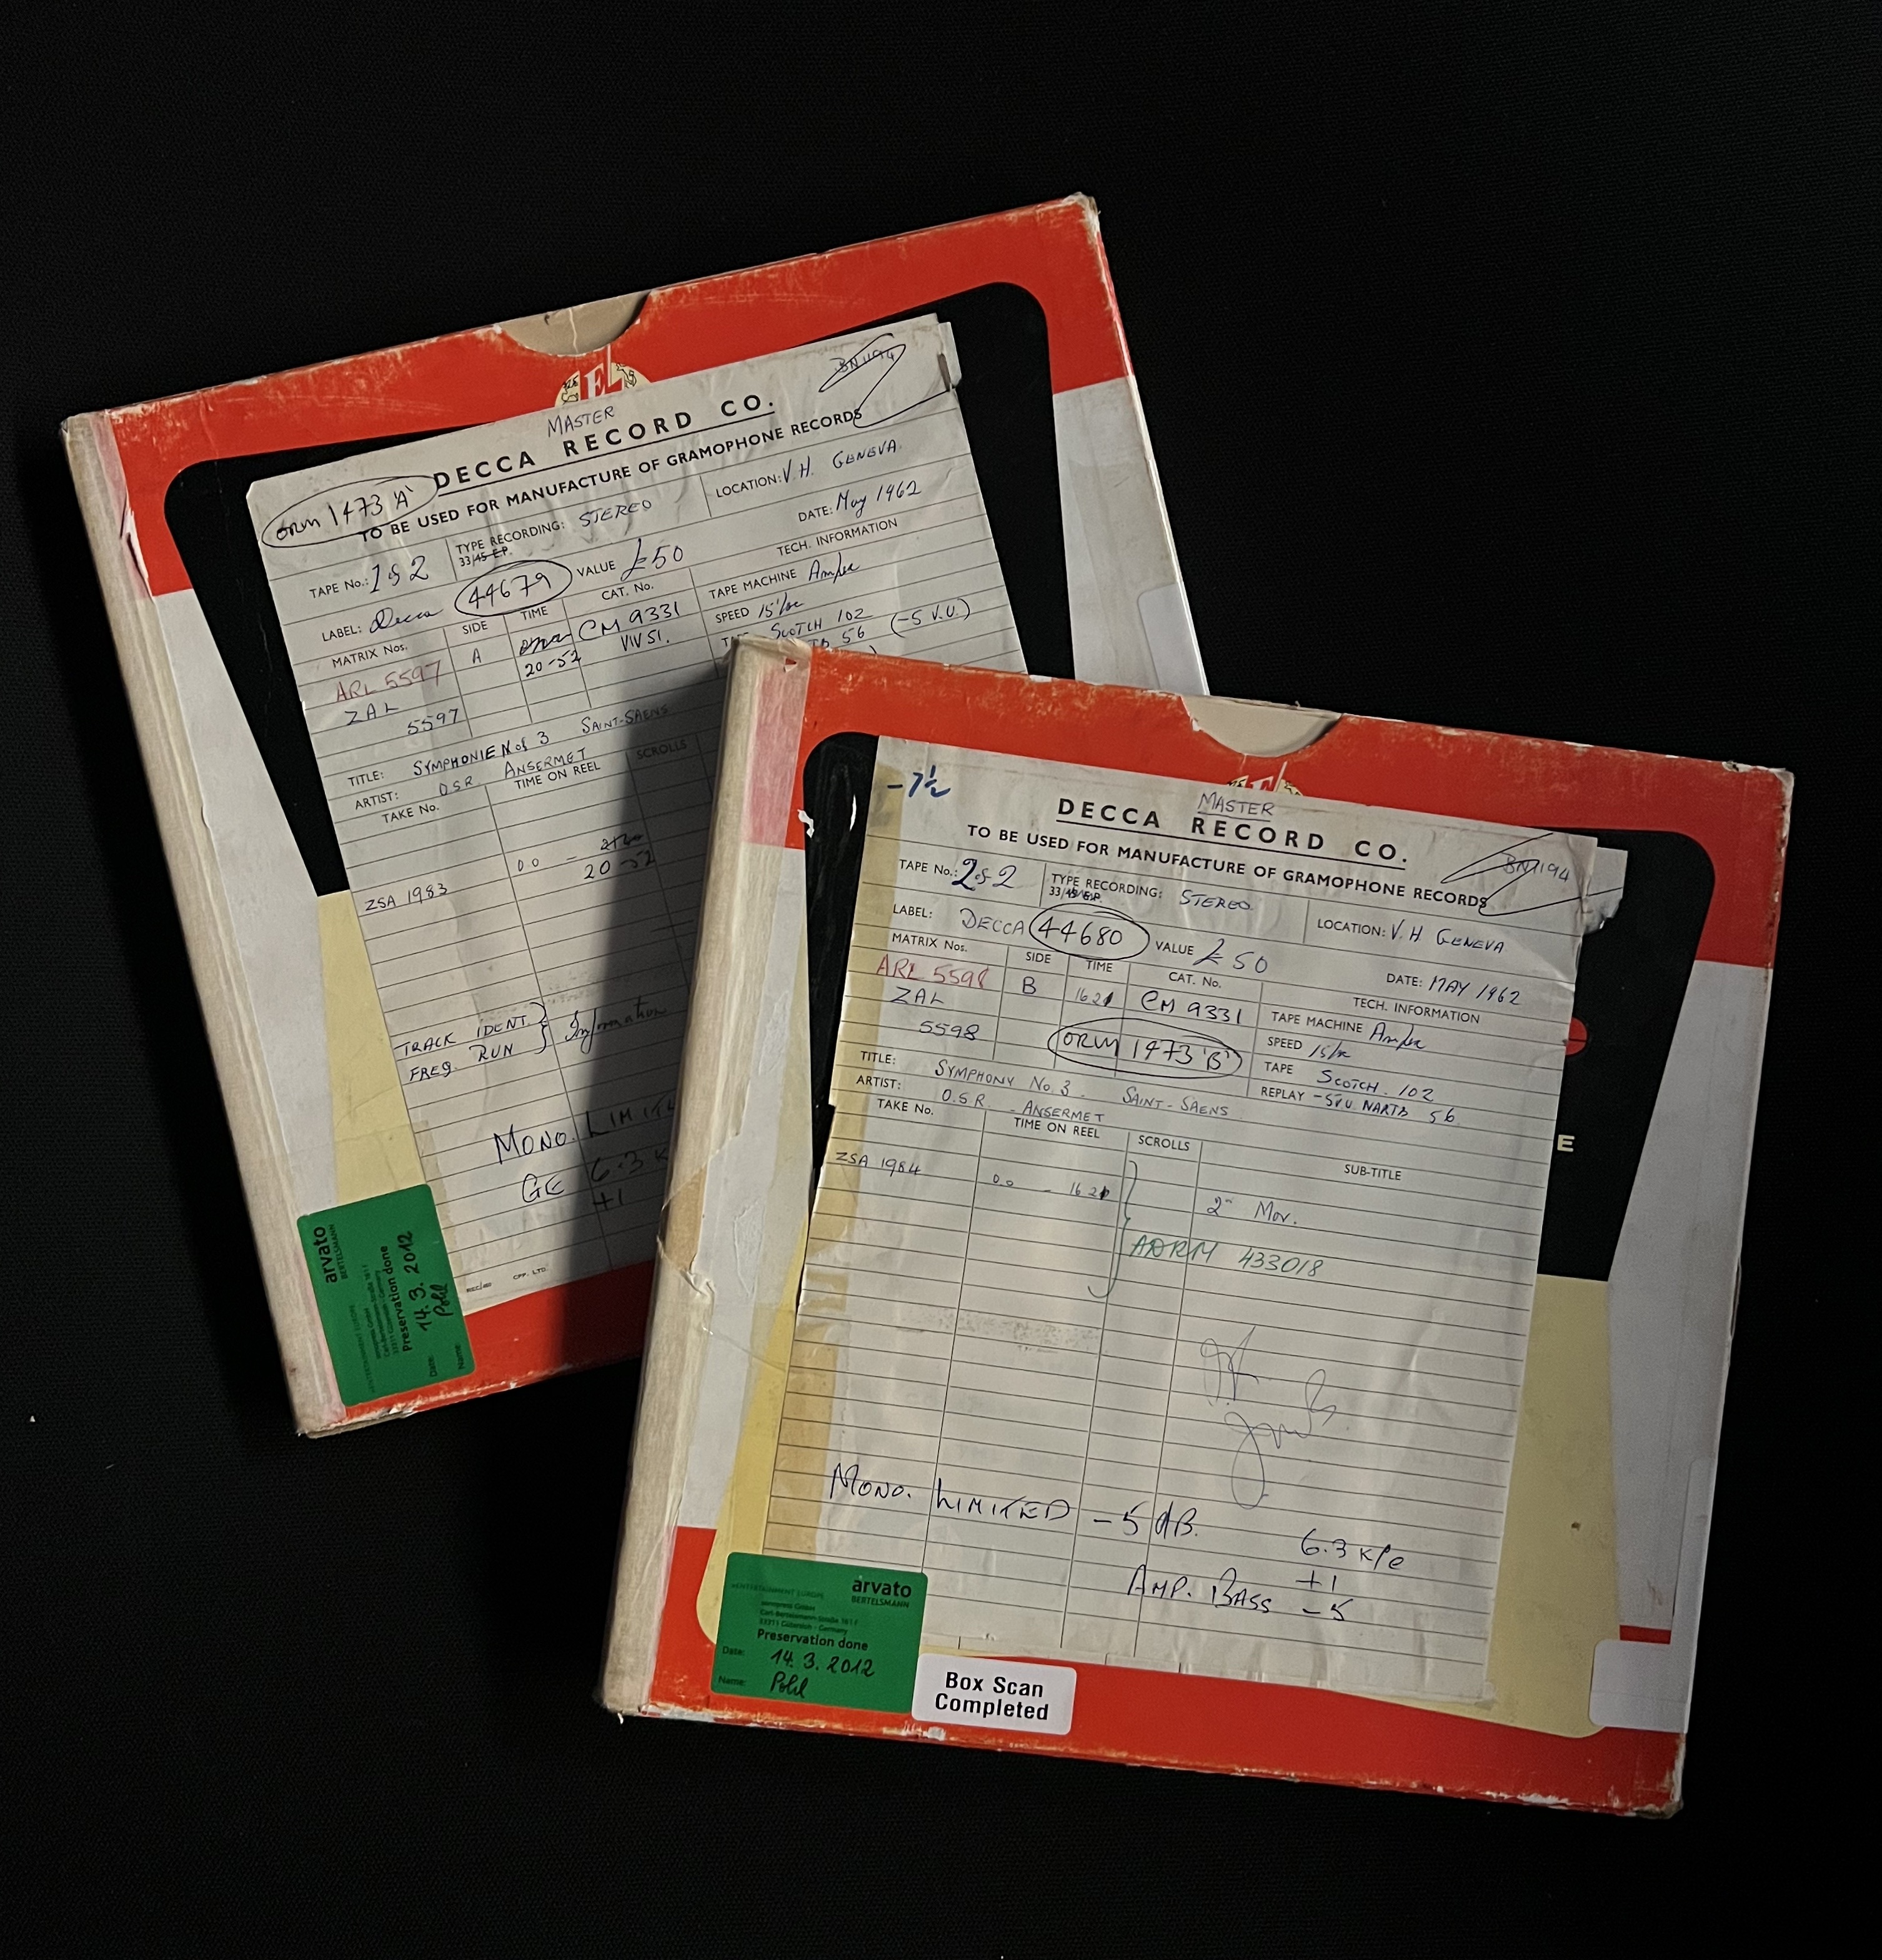 BN1194
MASTER
DECCA RECORD CO.
ORM 1473 'A'
TO BE USED FOR MANUFACTURE OF GRAMOPHONE RECORDS
TAPE No.: 1 of 2
TYPE RECORDING: STEREO
33/45 E.P.
LOCATION: V.H. GENEVA.
LABEL: Decca 44679 VALUE £50
DATE: May 1962
MATRIX Nos. SIDE TIME CAT. No. TECH. INFORMATION
ARL 5597 A CM 9331 TAPE MACHINE Ampex
ZAL 20-52 SPEED 15"/sec
5597 SCOTCH 102
56 (-5 V.U.)
TITLE: SYMPHONIE No. 3 SAINT-SAENS
ARTIST: O.S.R. ANSERMET
TAKE No. TIME ON REEL SCROLLS
ZSA 1983 0.0 - 20-52
TRACK IDENT.
FREQ. RUN } Information
MONO. LIMITE
GE 6.3 K
+1
CPP. LTD.
arvato
BERTELSMANN
Preservation done
Date: 14. 3. 2012
Name: Pohl
-7½
MASTER
DECCA RECORD CO.
BN1194
TO BE USED FOR MANUFACTURE OF GRAMOPHONE RECORDS
TAPE No.: 2 of 2
TYPE RECORDING: STEREO.
33/45 E.P.
LOCATION: V.H. GENEVA
LABEL: DECCA 44680 VALUE £50
DATE: MAY 1962
MATRIX Nos. SIDE TIME CAT. No. TECH. INFORMATION
ARL 5598 B 16 21 CM 9331 TAPE MACHINE Ampex
ZAL SPEED 15"/sec
5598 ORM 1473 'B' TAPE SCOTCH. 102
REPLAY -5VU NARTB 56
TITLE: SYMPHONY No. 3. SAINT-SAENS
ARTIST: O.S.R. - ANSERMET
TAKE No. TIME ON REEL SCROLLS SUB-TITLE
ZSA 1984 0.0 - 16 21
2nd Mov.
ADRM 433018
MONO. LIMITED -5 dB.
6.3 K/c
+1
AMP. BASS -5
E
arvato
BERTELSMANN
Carl-Bertelsmann-Straße 161 F
33311 Gütersloh - Germany
Preservation done
Date: 14. 3. 2012
Name: Pohl
Box Scan
Completed